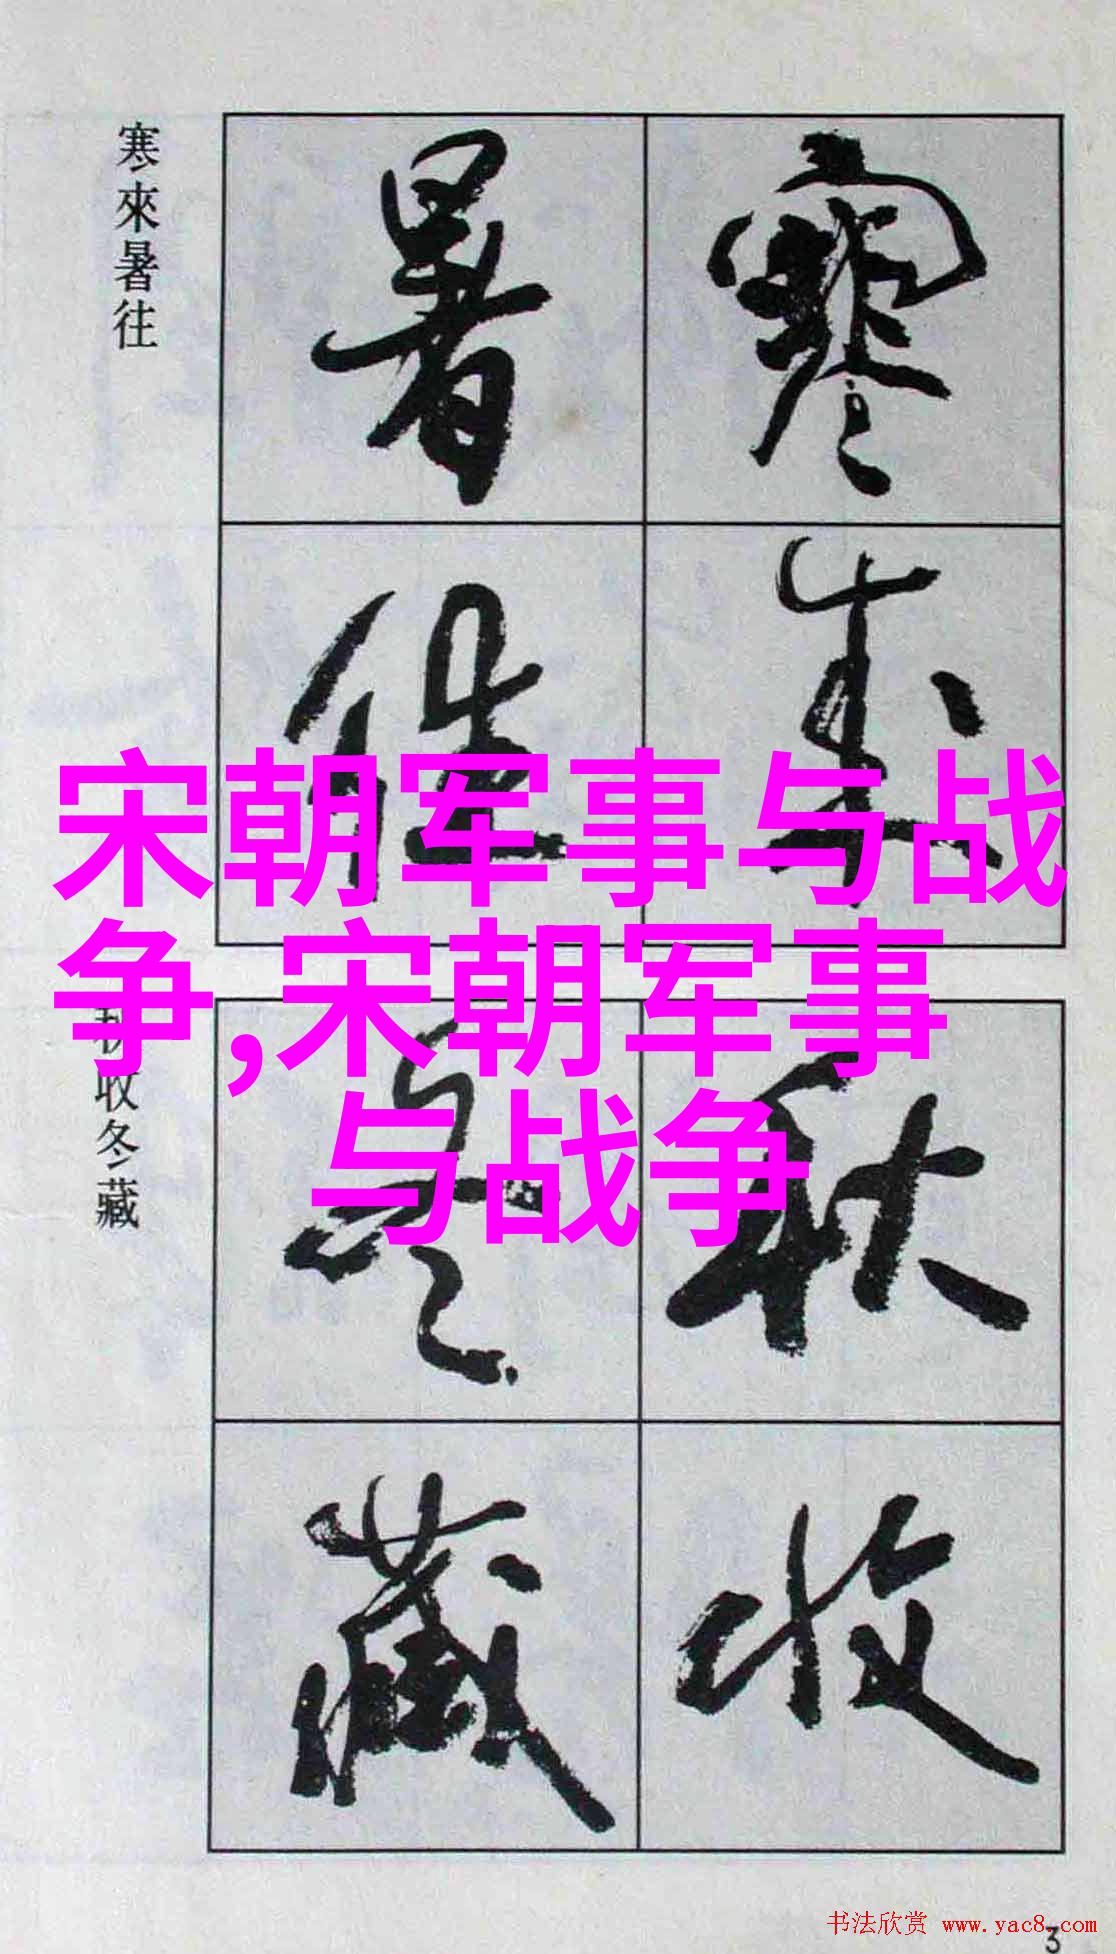 寒來暑往
寒来
暑往
宋朝军事与战
争,宋朝军事
与战争
收冬藏
秋收
冬藏
书法欣赏 www.yac8.com
3